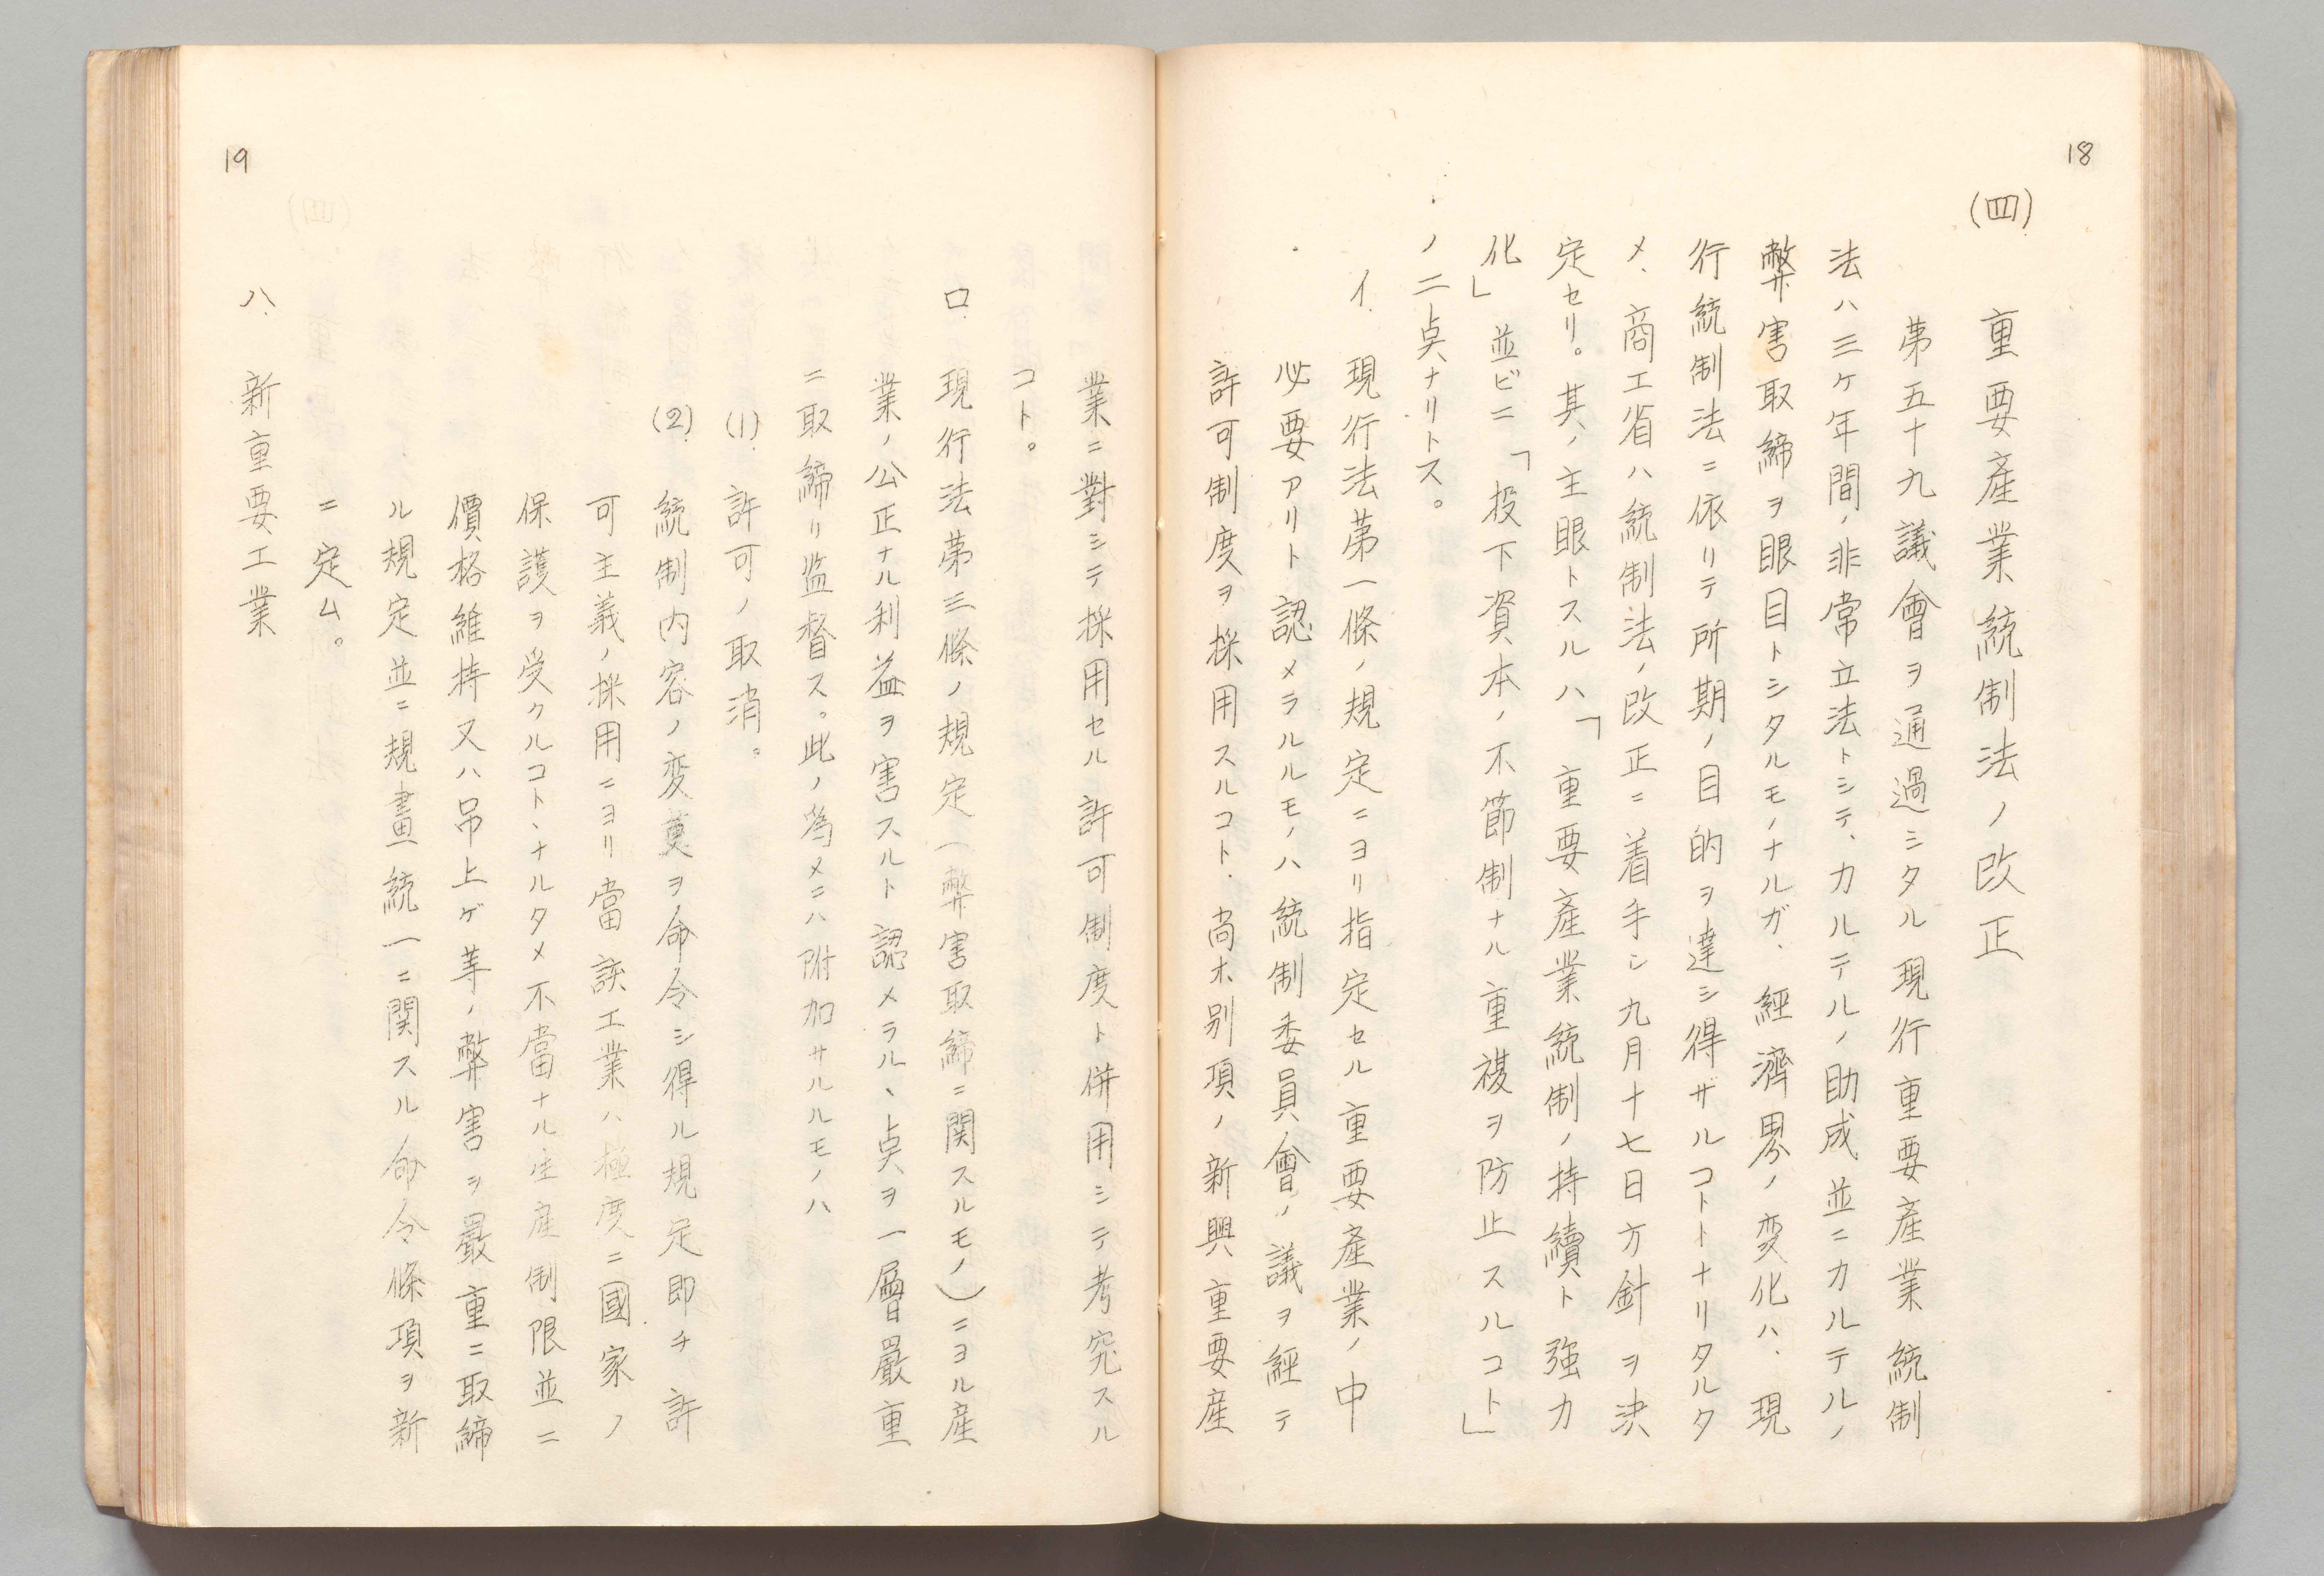 18
(四) 重要產業統制法ノ改正
第五十九議會ヲ通過シタル現行重要產業統制
法ハ三ケ年間ノ非常立法トシテ、カルテルノ助成並ニカルテルノ
弊害取締ヲ眼目トシタルモノナルガ、經濟界ノ変化ハ、現
行統制法ニ依リテ所期ノ目的ヲ達シ得ザルコトトナリタルタ
メ、商工省ハ統制法ノ改正ニ着手シ九月十七日方針ヲ決
定セリ。其ノ主眼トスルハ「重要產業統制ノ持續ト強力
化」並ビニ「投下資本ノ不節制ナル重複ヲ防止スルコト」
ノ二点ナリトス。
イ、現行法第一條ノ規定ニヨリ指定セル重要產業ノ中
必要アリト認メラルルモノハ統制委員會ノ議ヲ經テ
許可制度ヲ採用スルコト、尚ホ別項ノ新興重要産
業ニ對シテ採用セル許可制度ト併用シテ考究スル
コト。
ロ、現行法第三條ノ規定(弊害取締ニ関スルモノ)ニヨル産
業ノ公正ナル利益ヲ害スルト認メラルヽ点ヲ一層嚴重
ニ取締リ监督ス。此ノ為メニハ附加サルルモノハ
(1) 許可ノ取消。
(2) 統制内容ノ変更ヲ命令シ得ル規定即チ許
可主義ノ採用ニヨリ當該工業ハ極度ニ國家ノ
保護ヲ受クルコトヽナルタメ不當ナル生産制限並ニ
價格維持又ハ吊上ゲ等ノ弊害ヲ嚴重ニ取締
ル規定並ニ規畫統一ニ関スル命令條項ヲ新
ニ定ム。
ハ、新重要工業
19